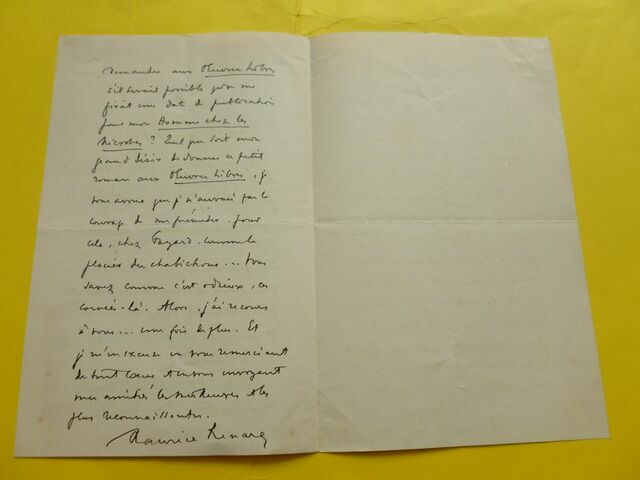 demander aux Œuvres Libres
s'il serait possible qu'on me
fixât une date de publication
pour mon Homme chez les
Microbes ? Quel que soit mon
grand désir de donner ce petit
roman aux Œuvres Libres, je
vous avoue que je n'aurais pas le
courage de me présenter, pour
cela, chez Fayard, comme le
placier du chabichou... Vous
savez comme c'est odieux, ces
corvées-là. Alors, j'ai recours
à vous... une fois de plus. Et
je m'en excuse en vous remerciant
de tout cœur et en vous envoyant
mes amitiés les meilleures et les
plus reconnaissantes.
Maurice Renard